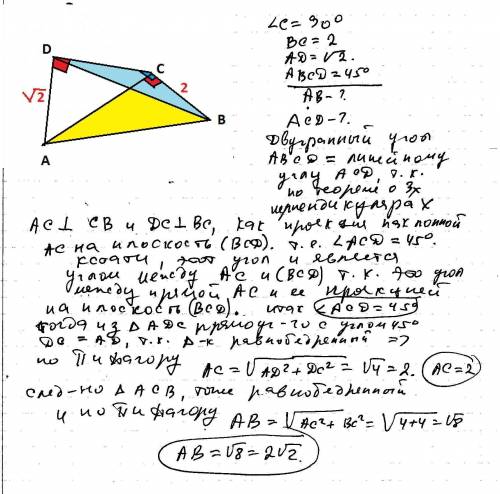 ∠C = 90°
BC = 2
AD = √2.
ABCD = 45°
AB - ?
ACD - ?
D
C
2
√2
B
A
Двугранный угол
ABCD = линейному
углу ACD, т.к.
по теореме о 3х
перпендикулярах
AC⊥ CB и DC⊥BC, как проекция наклонной
AC на плоскость (BCD). т.е. ∠ACD = 45°.
кстати, этот угол и является
углом между AC и (BCD) т.к. это угол
между прямой AC и ее проекцией
на плоскость (BCD). итак ∠ACD = 45°
тогда из △ADC прямоуг-го с углом 45°
DC = AD, т.к. △-к равнобедренный =>
по Пифагору AC = √AD² + DC² = √4 = 2. AC = 2
след-но △ACB, тоже равнобедренный
и по Пифагору AB = √AC² + BC² = √4+4 = √8
AB = √8 = 2√2.